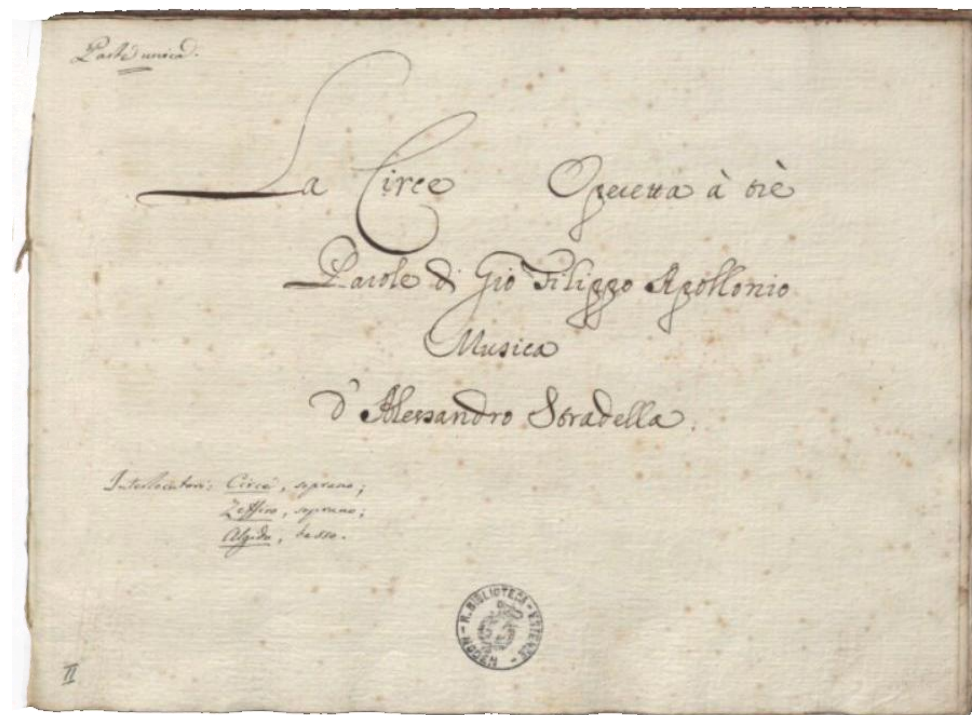 Parte unica.
La Circe Operetta à trè
Parole di Gio Filippo Apollonio
Musica
d'Alessandro Stradella.
Interlocutori: Circe, soprano;
Zeffiro, soprano;
Algido, basso.
R. BIBLIOTECA - ESTENSE - MODENA
II